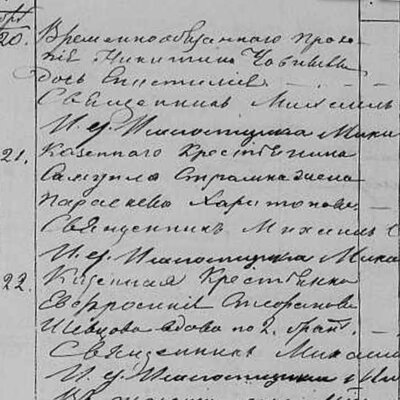 20. Временнообязаннаго Проко
пія Никитина
дочь
Священникъ Михаилъ
И. д. Псаломщика Мики
21. Казеннаго Крестьянина
Самуила жена
Параскева Харитонова
Священникъ Михаилъ С
И. д. Псаломщика Мика
22. Казенная Крестьянка
Евфросинія Стефанова
Шевцова вдова по 2. брак.
Священникъ Михаил
И. д. Псаломщика